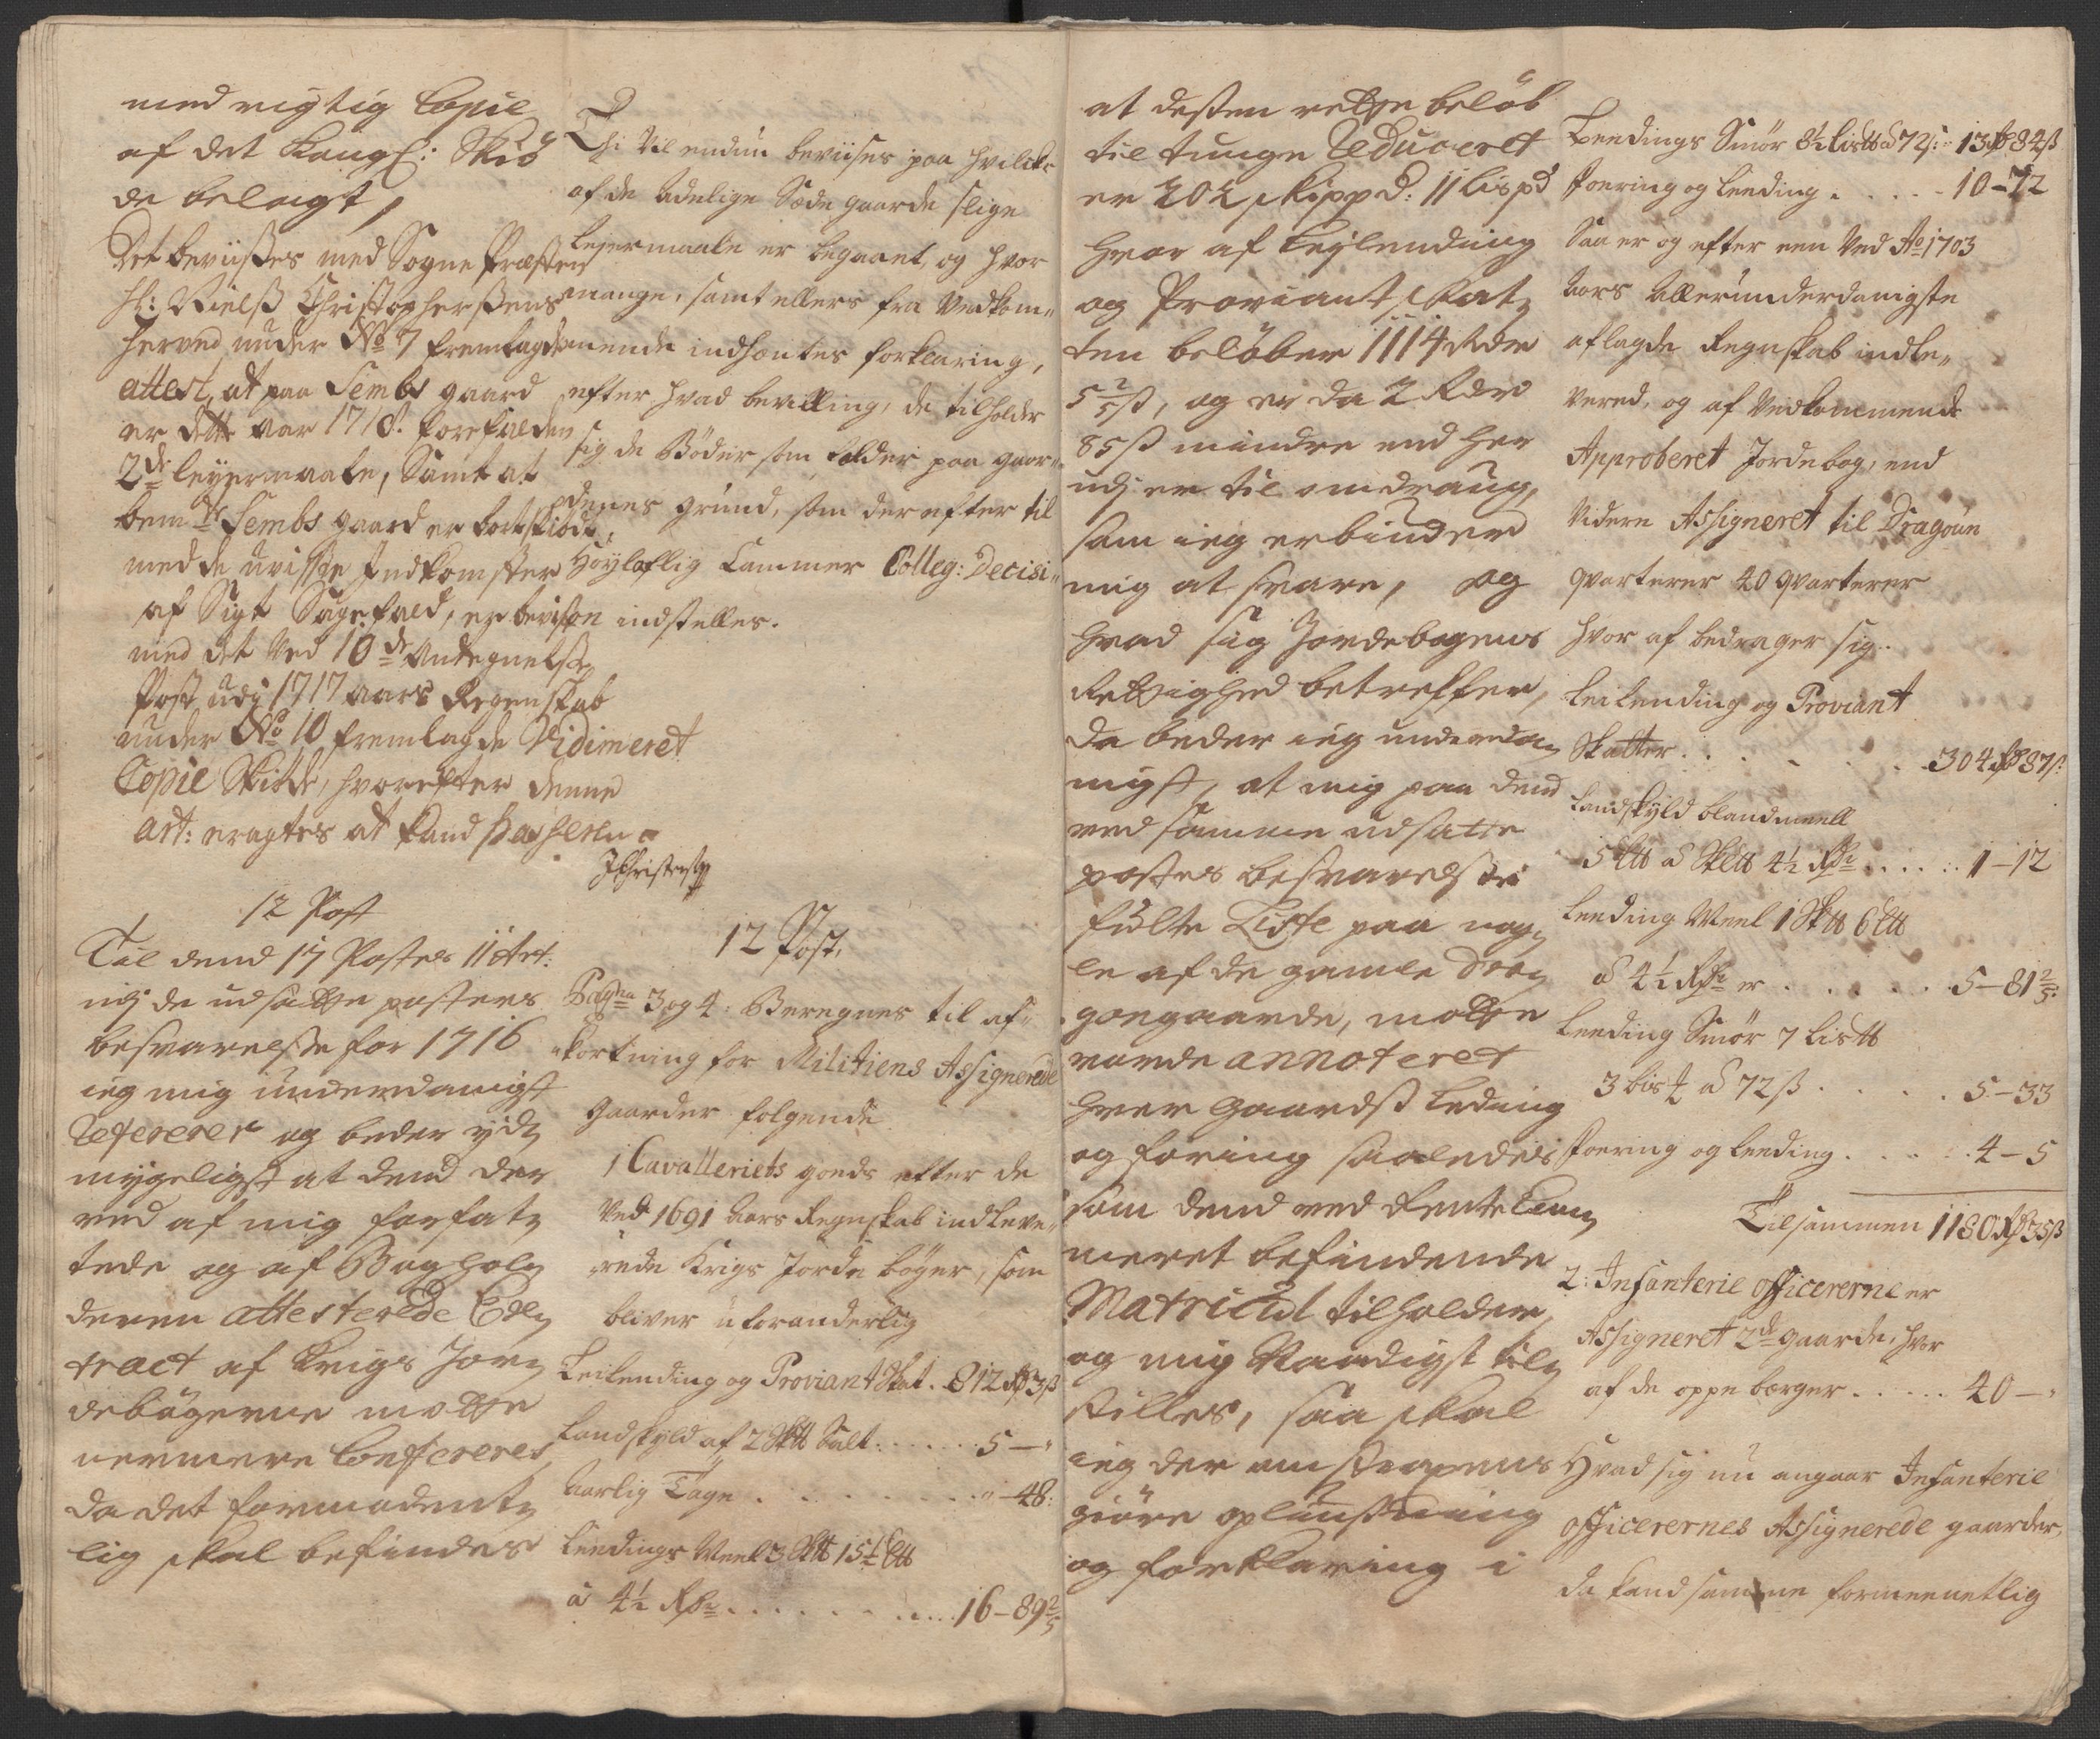 med rigtig Copie
af det Kongl: Skiö
de belagt,
Det beviisses med Sogne Præsten
Hr: Nielss Christopherssens
herved under No 7 fremlagde
attest, at paa Sembs gaard
er dette aar 1718. forefalden
2de leyermaale, Samt at
bemte Sembs gaard er bortskiödt,
med de uvisse Indkomster
af Sigt Sagefald, er bevist
med det Ved 10de Andtegnelse
Post udj 1717 aars Regenskab
under No 10 fremlagde Vidimeret
Copie Skiöde, hvorefter denne
Art: eragtes at kand passere
JChristensen
12 Post
Til dend 17 Postes 11 Art:
udj de udsatte posters
besvarelsse for 1716
ieg mig underdanigst
Refererer og beder ydz
mygeligst at dend der
ved af mig forfatz
tede og af Bogholz
deren attesterede Exz
tract af Krigs Jorz
debögerne motte
nermere Confereres,
da det formodentz
lig skal befindes
Thi Vil endnu beviises paa hvilcke
af de Adelige Sæde gaarde slige
Lejermaale er begaaet, og hvor
mange, samt ellers fra Vedkom-
mende indhentes forklaring,
efter hvad bevilling, de tilholder
sig de Böder som falder paa gaar-
denes grund, som derefter til
Höylovlig Cammer Colleg: Decisi-
on indstelles.
12 Post.
Pagna 3 og 4. Beregnes til af-
kortning for Militiens Assignerede
Gaarder folgende
1 Cavalleriets gods efter de
Ved 1691 Aars Regnskab indleve-
rede Krigs Jorde böger, som
bliver uforanderlig
Leilending og Proviant Skat . 812 Rd 3 ß
Landskyld af 2 Sktt Salt . . . . 5 — "
Aarlig Tage . . . . . . . . " — 48:
Leedings Meel 3 Sktt 15½ Ltt
a 4½ Rdr . . . . . . . . 16 — 89 2/5
at desten rette belöb
til tunge Reduceret
er 202 skippd: 11 Lispd
hvor af Leylending
og Proviant skatz
ten belöber 1114 Rdr
5 2/5 ß, og er da 2 Rdr
85 ß mindre end her
udj er til omdraug,
som ieg erbinder
mig at svare, og
hvad sig Jordebogens
Rettighed betreffer,
da beder ieg underdaz
nigst, at mig paa dend
ved samme udsatte
postes besvarelsse
fulte Liste paa nogz
le af de gamle Draz
gongaarde, motte
vorde annoteret
hver Gaardss Leding
og foring saaledes
som dend ved Rente Camz
meret befindende
Matricul tilholder,
og mig Naadigst tilz
stilles, saa skal
ieg der omstrapens
giöre oplüssning
og forklaring i
Leedings Smör 8½ Listt a 72 ß: 13 Rd 84 ß
Foering og Leeding . . . . . 10 — 72
Saa er og efter een Ved Ao 1703
Aars Allerunderdanigste
aflagde Regnskab indle-
vered, og af Vedkommende
Approberet Jordebog, end
Videre Assigneret til Dragoun
qvarterer 40 qvarterer
hvor af bedrager sig.
Leilending og Proviant
Skatter . . . . . . . . 304 Rd 87 ß
Landskyld blandmeell
5 Ltt a Sktt 4½ Rdr . . . . . . 1 — 12
Leeding Meel 1 Sktt 6 Ltt
a 4½ Rdr er . . . . . . 5 — 81 2/5
Leeding Smör 7 Listt
3 bis½ a 72 ß . . . . . 5 — 33
Foering og Leeding . . . . . . 4 — 5
Tilsammen 1180 Rd 35 ß
2: Infanterie officererne er
Assigneret 2de gaarde, hvor
af de oppe borger . . . . . 40 — "
Hvad sig nu angaar Infanterie
officerernes Assignerede gaarder,
da kand samme formeenetlig